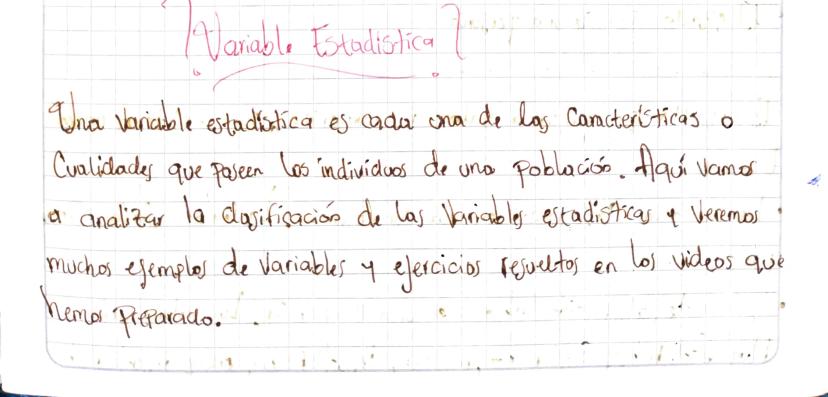 Variable Estadistica
Una Variable estadística es cada una de las Características o
Cualidades que poseen los individuos de una población. Aquí vamos
a analizar la clasificación de las Variables estadisticas y veremos
muchos ejemplos de Variables y ejercicios resueltos en los videos que
hemos preparado.